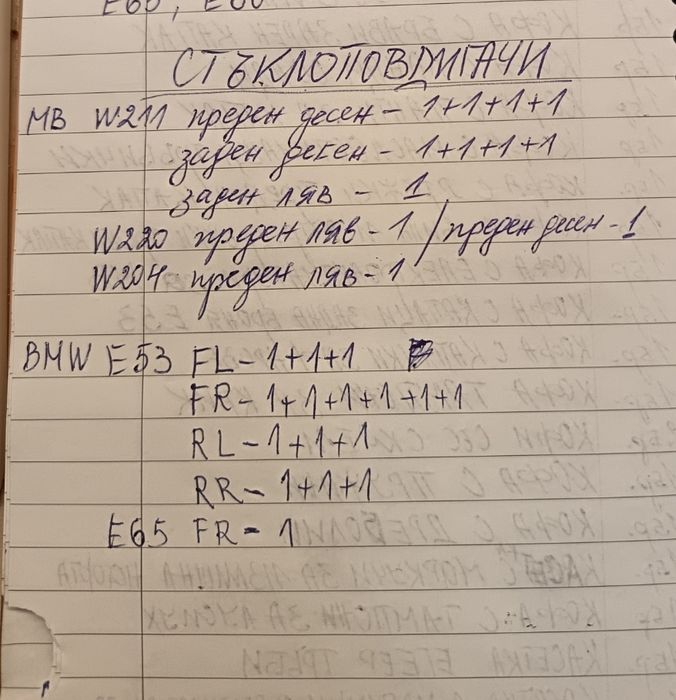 E65, E60
СТЪКЛОПОВДИГАЧИ
MB W211 преден десен - 1+1+1+1
заден десен - 1+1+1+1
заден ляв - 1
W220 преден ляв - 1 / преден десен - 1
W204 преден ляв - 1
BMW E53 FL - 1+1+1
FR - 1+1+1+1+1+1
RL - 1+1+1
RR - 1+1+1
E65 FR - 1